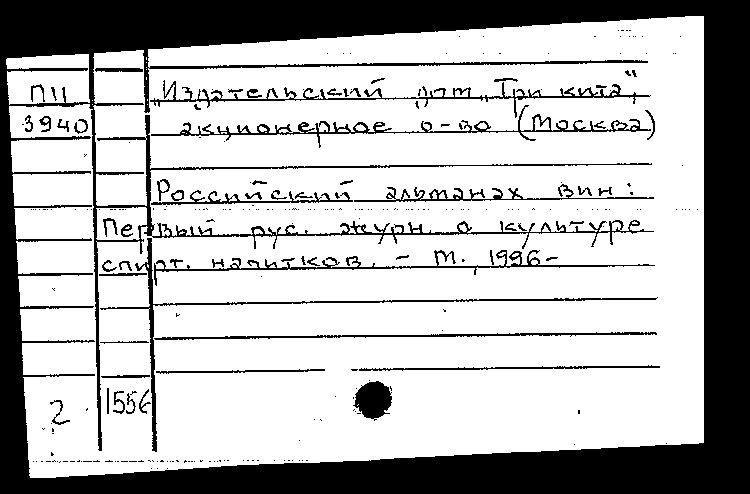 П11
3940
„Издательский дом „Три кита“,
акционерное о-во (Москва)
Российский альманах вин:
Первый рус. журн. о культуре
спирт. напитков. – М., 1996–
2
1556